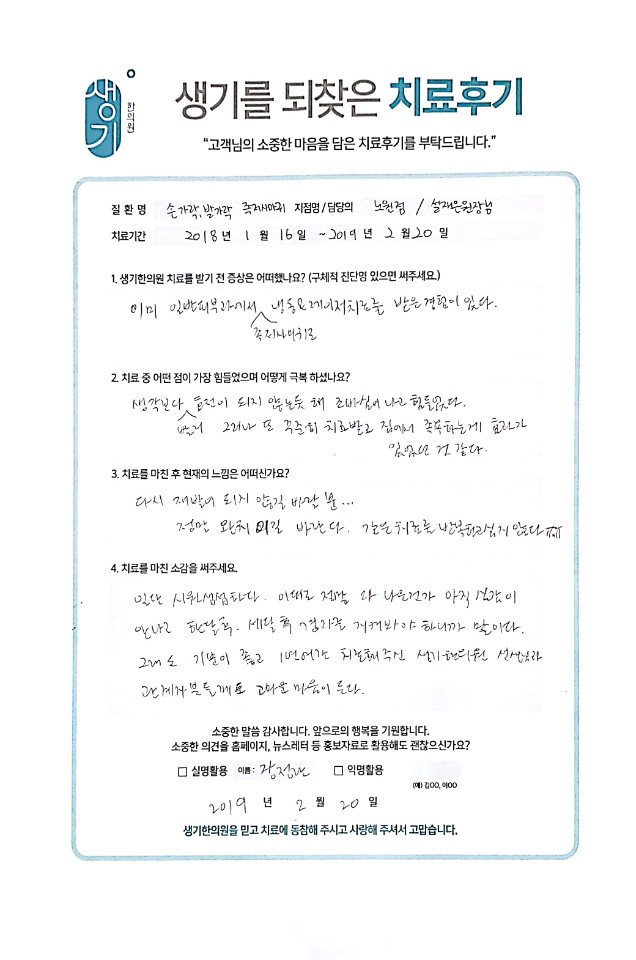 생기
한의원
생기를 되찾은 치료후기
"고객님의 소중한 마음을 담은 치료후기를 부탁드립니다."
질 환 명 손가락, 발가락 족저사마귀 지점명/담당의 노원점 / 설재은원장님
치료기간 2018 년 1 월 16 일 ~ 2019 년 2 월 20 일
1. 생기한의원 치료를 받기 전 증상은 어떠했나요? (구체적 진단명 있으면 써주세요.)
이미 일반피부과에서 냉동요 레이저치료를 받은 경험이 있다.
족저사마귀로
2. 치료 중 어떤 점이 가장 힘들었으며 어떻게 극복 하셨나요?
생각보다 호전이 되지 않는듯 해 조바심이 나고 힘들었다.
빨리 그러나 또 꾸준히 치료받고 집에서 족욕하는게 효과가
있었던 것 같다.
3. 치료를 마친 후 현재의 느낌은 어떠신가요?
다시 재발이 되지 않길 바랄 뿐...
정말 완치 이길 바란다. 같은 치료를 반복하고싶지 않다 ㅠㅠ
4. 치료를 마친 소감을 써주세요.
일단 시원섭섭하다. 이대로 정말 다 나은건가 아직 실감이
안나고 한달 후, 세달 후 경과를 지켜봐야 하니까 말이다.
그래도 기분이 좋고 1년여간 치료해주신 생기한의원 선생님과
관계자분들께도 고마운 마음이 든다.
소중한 말씀 감사합니다. 앞으로의 행복을 기원합니다.
소중한 의견을 홈페이지, 뉴스레터 등 홍보자료로 활용해도 괜찮으신가요?
□ 실명활용 이름: □ 익명활용
(예) 김OO, 이OO
2019 년 2 월 20 일
생기한의원을 믿고 치료에 동참해 주시고 사랑해 주셔서 고맙습니다.